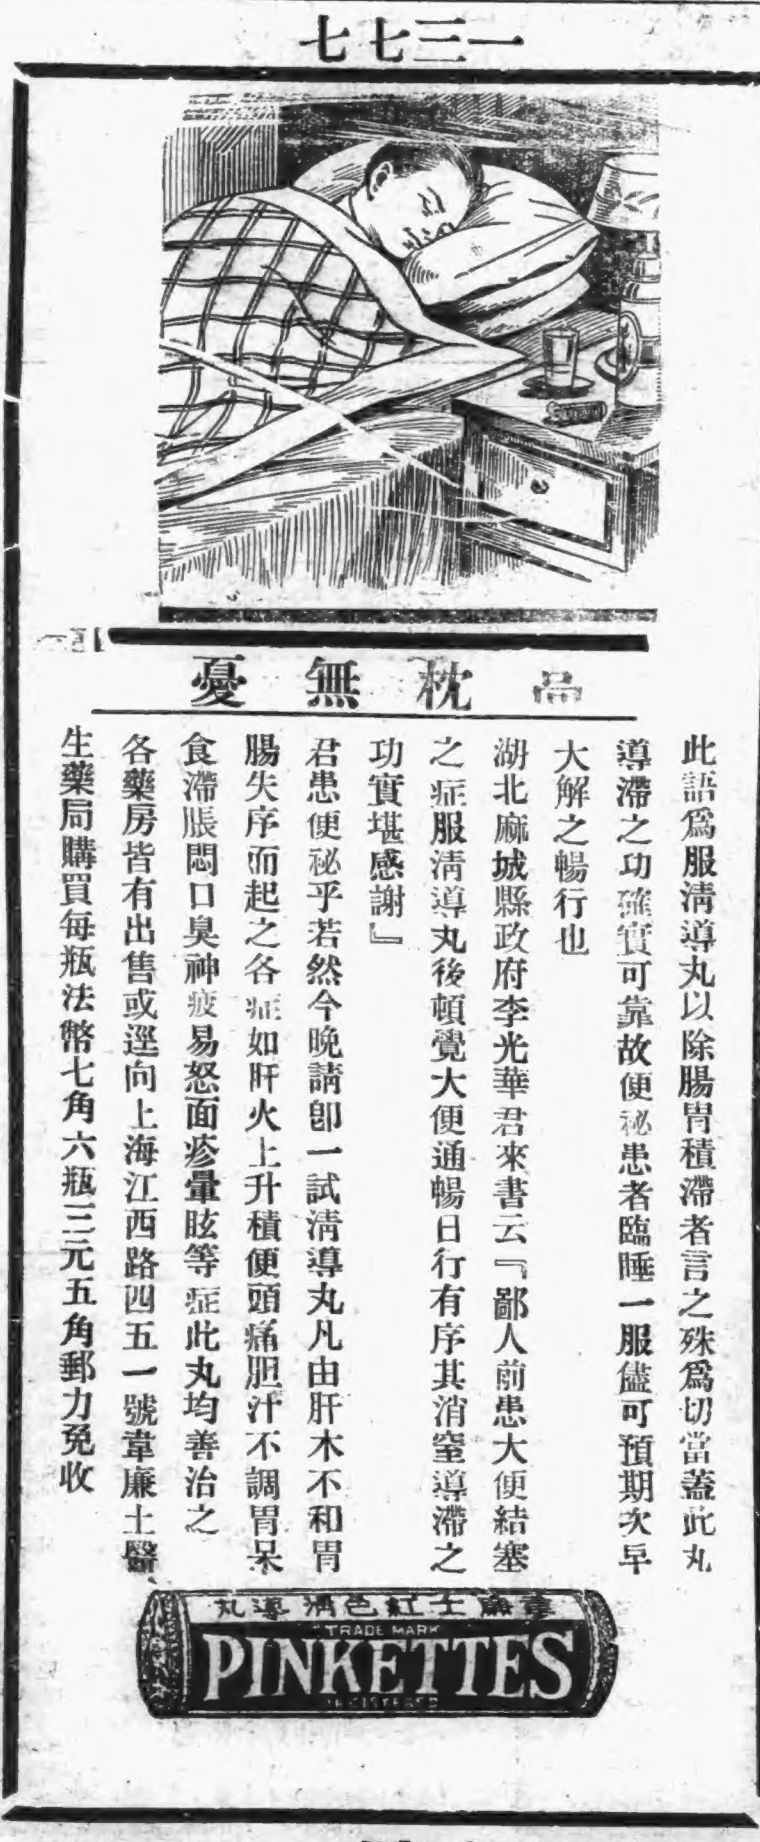 一三七七
高枕無憂
此語爲服清導丸以除腸胃積滯者言之殊爲切當蓋此丸
導滯之功確實可靠故便祕患者臨睡一服儘可預期次早
大解之暢行也
湖北麻城縣政府李光華君來書云『鄙人前患大便結塞
之症服清導丸後頓覺大便通暢日行有序其消窒導滯之
功實堪感謝』
君患便祕乎若然今晚請卽一試清導丸凡由肝木不和胃
腸失序而起之各症如肝火上升積便頭痛胆汁不調胃呆
食滯脹悶口臭神疲易怒面疹暈眩等症此丸均善治之
各藥房皆有出售或逕向上海江西路四五一號韋廉士醫
生藥局購買每瓶法幣七角六瓶三元五角郵力免收
韋廉士紅色清導丸
TRADE MARK
PINKETTES
REGISTERED